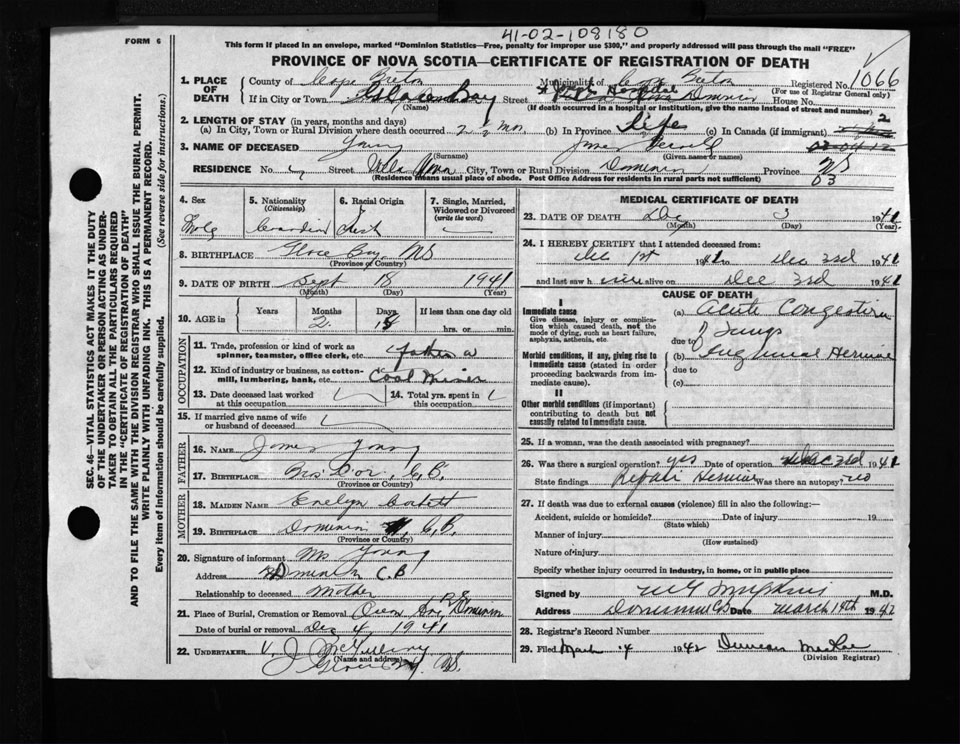 41-02-108180
FORM 6
This form if placed in an envelope, marked "Dominion Statistics—Free, penalty for improper use $300," and properly addressed will pass through the mail "FREE"
PROVINCE OF NOVA SCOTIA—CERTIFICATE OF REGISTRATION OF DEATH
1. PLACE OF DEATH County of Cape Breton Municipality of Cape Breton Registered No. 1066
(For use of Registrar General only)
If in City or Town Glace Bay Street Hospital House No.
(Name) (If death occurred in a hospital or institution, give the name instead of street and number)
2. LENGTH OF STAY (in years, months and days) 2
(a) In City, Town or Rural Division where death occurred 2 ½ mos (b) In Province Life (c) In Canada (if immigrant)
3. NAME OF DECEASED Young James
(Surname) (Given name or names)
RESIDENCE No. Street City, Town or Rural Division Dominion Province NS
(Residence means usual place of abode. Post Office Address for residents in rural parts not sufficient) 03
4. Sex
5. Nationality (Citizenship) Canadian
6. Racial Origin Irish
7. Single, Married, Widowed or Divorced (write the word)
8. BIRTHPLACE Glace Bay, NS
(Province or Country)
9. DATE OF BIRTH Sept 18 1941
(Month) (Day) (Year)
10. AGE in Years Months 2 Days 15 If less than one day old hrs. or min.
OCCUPATION
11. Trade, profession or kind of work as spinner, teamster, office clerk, etc. father a
12. Kind of industry or business, as cotton-mill, lumbering, bank, etc. Coal Miner
13. Date deceased last worked at this occupation
14. Total yrs. spent in this occupation
15. If married give name of wife or husband of deceased
FATHER
16. NAME James Young
17. BIRTHPLACE Bras d'or, C.B.
(Province or Country)
MOTHER
18. MAIDEN NAME Evelyn
19. BIRTHPLACE Dominion C.B.
(Province or Country)
20. Signature of informant Mrs Young
Address Dominion C.B
Relationship to deceased Mother
21. Place of Burial, Cremation or Removal Dominion
Date of burial or removal Dec 4 1941
22. UNDERTAKER V. J. McGillivray
(Name and address)
Glace Bay NS.
MEDICAL CERTIFICATE OF DEATH
23. DATE OF DEATH Dec 3 1941
(Month) (Day) (Year)
24. I HEREBY CERTIFY that I attended deceased from:
Dec 1st 1941 to Dec 3rd 1941
and last saw h alive on Dec 3rd 1941
CAUSE OF DEATH
I
Immediate cause
Give disease, injury or complication which caused death, not the mode of dying, such as heart failure, asphyxia, asthenia, etc.
(a) Acute Congestion
of Lungs
due to
Morbid conditions, if any, giving rise to immediate cause (stated in order proceeding backwards from immediate cause).
(b) Inguinal Herniae
due to
(c)
II
Other morbid conditions (if important) contributing to death but not causally related to immediate cause.
25. If a woman, was the death associated with pregnancy?
26. Was there a surgical operation? yes Date of operation Dec 3rd 1941
State findings Repair Herniae Was there an autopsy? no
27. If death was due to external causes (violence) fill in also the following:
Accident, suicide or homicide? Date of injury 19
(State which)
Manner of injury
(How sustained)
Nature of injury
Specify whether injury occurred in industry, in home, or in public place
Signed by M.D.
Address Dominion CB Date March 14th 1942
28. Registrar's Record Number
29. Filed March 4 1942 Duncan MacRae
(Division Registrar)
SEC. 46—VITAL STATISTICS ACT MAKES IT THE DUTY
OF THE UNDERTAKER OR PERSON ACTING AS UNDER-
TAKER TO OBTAIN ALL THE PARTICULARS REQUIRED
IN THE "CERTIFICATE OF REGISTRATION OF DEATH"
AND TO FILE THE SAME WITH THE DIVISION REGISTRAR WHO SHALL ISSUE THE BURIAL PERMIT.
WRITE PLAINLY WITH UNFADING INK. THIS IS A PERMANENT RECORD.
Every item of information should be carefully supplied. (See reverse side for instructions).